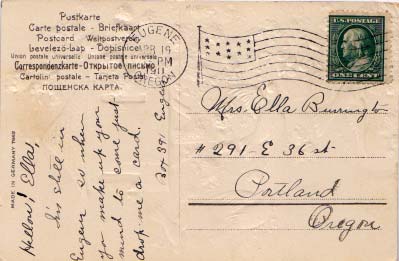 Postkarte
Carte postale - Briefkaart
Postcard - Weltpostverein
Levelező-Lap - Dopisnice
Union postale universelle - Unione postale universale
Correspondenzkarte - Открытое письмо
Cartolin postale - Tarjeta Postal
ПОШЕНСКА КАРТА.
EUGENE
APR 19
PM
1911
OREGON
U.S. POSTAGE
ONE CENT
MADE IN GERMANY
Hellow! Ella,
I'm still in
Eugene so when
you make up your
mind to come just
drop me a card.
Box 391 Eugene
Mrs. Ella Burrington
# 291 - E 36 st
Portland
Oregon